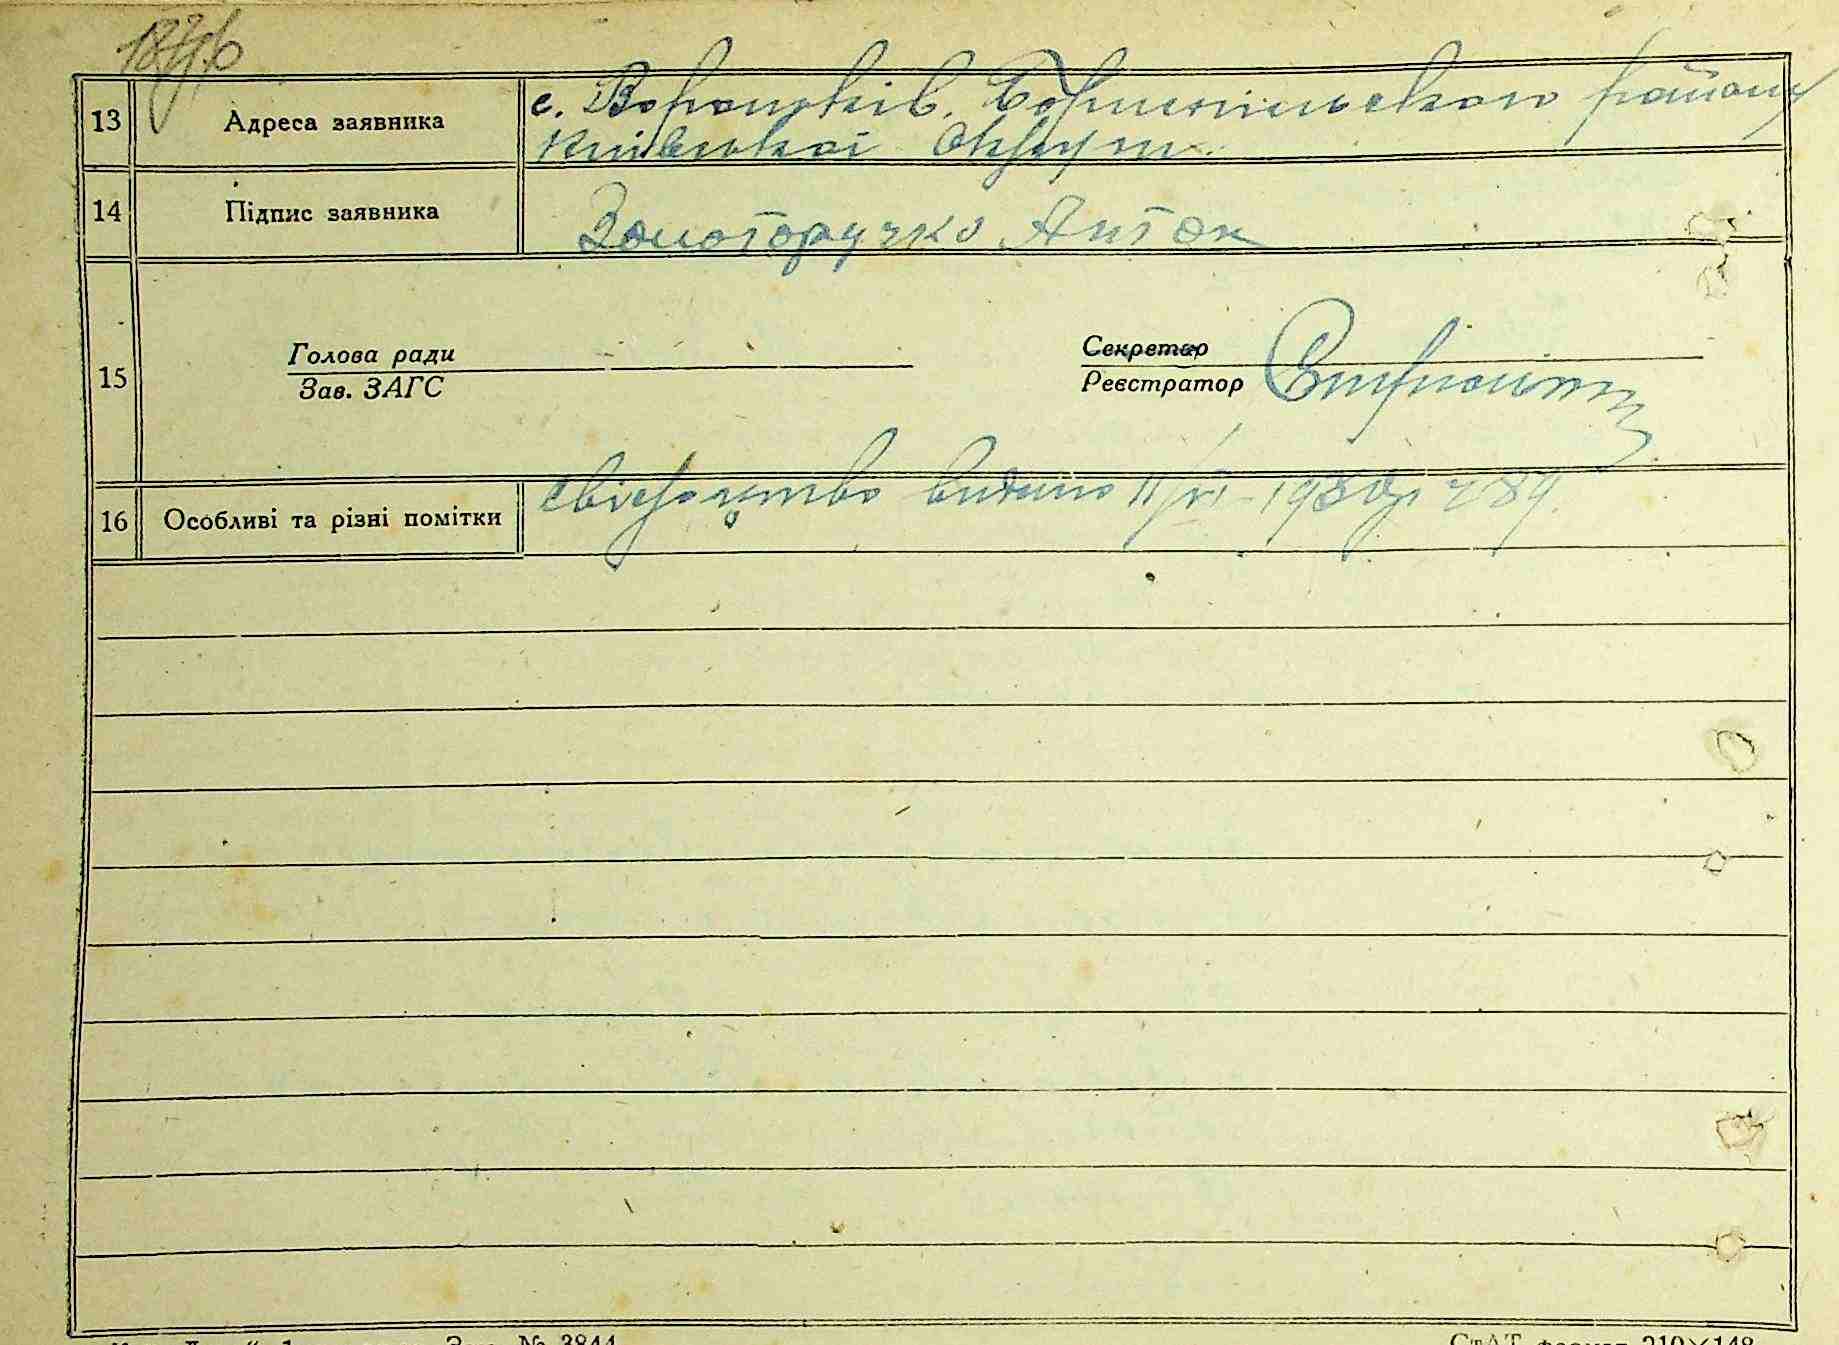 13 Адреса заявника с. Вороньків. Бориспільского району
Київської Округи
14 Підпис заявника Золоторучко Антон
Голова ради Секретар
15
Зав. ЗАГС Реєстратор
16 Особливі та різні помітки свідоцтво видано 11/VI-1930р. ч 89.
Зак. № 3844 СтАТ формат 210×148